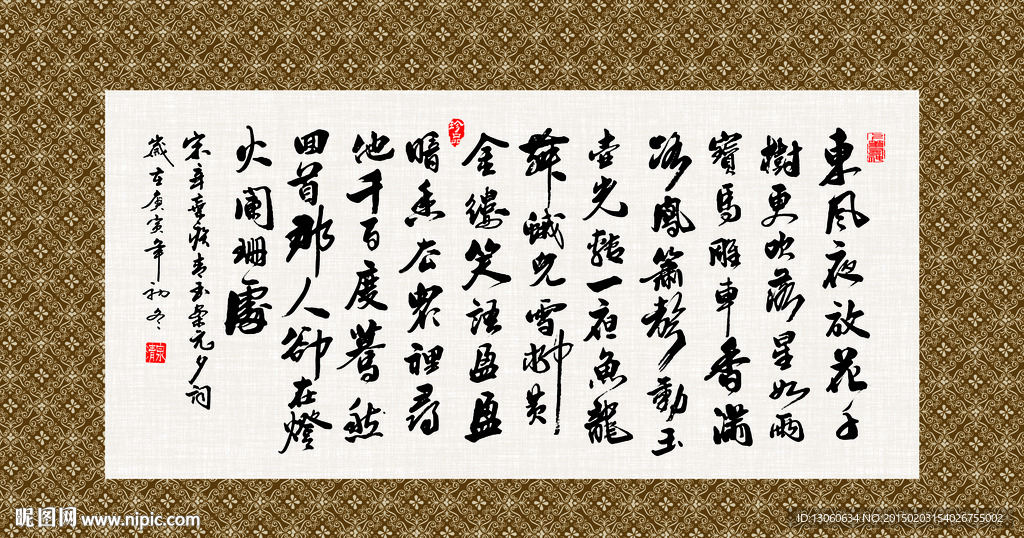 東風夜放花千
樹更吹落星如雨
寶馬雕車香滿
路鳳簫聲動玉
壺光轉一夜魚龍
舞蛾兒雪柳黃
金縷笑語盈盈
暗香去眾裡尋
他千百度驀然
回首那人卻在燈
火闌珊處
宋辛棄疾青玉案元夕詞
歲在庚寅年初冬
珍品
昵图网 www.nipic.com
ID:13060634 NO:20150203154026755002